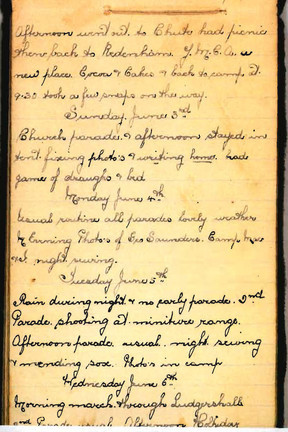 Afternoon went out to Chute had picnic
then back to Redenham. Y.M.C.A. a
new place. Cocoa & Cakes & back to camp at
9.30 took a few snaps on the way.
Sunday. June 3rd
Church parade. & afternoon stayed in
tent. fixing photo's & writing home. had
game of draughs & bed
Monday June 4th
Usual routine all parades lovely weather
Evening Photo's of Geo Saunders. Camp
night sewing.
Tuesday June 5th
Rain during night & no early parade. 2nd
Parade. shooting at miniture range.
Afternoon parade usual. night sewing
& mending sox. Photo's in camp
Wednesday June 6th
Morning march through Ludgershall
2nd Parade usual. Afternoon Holiday